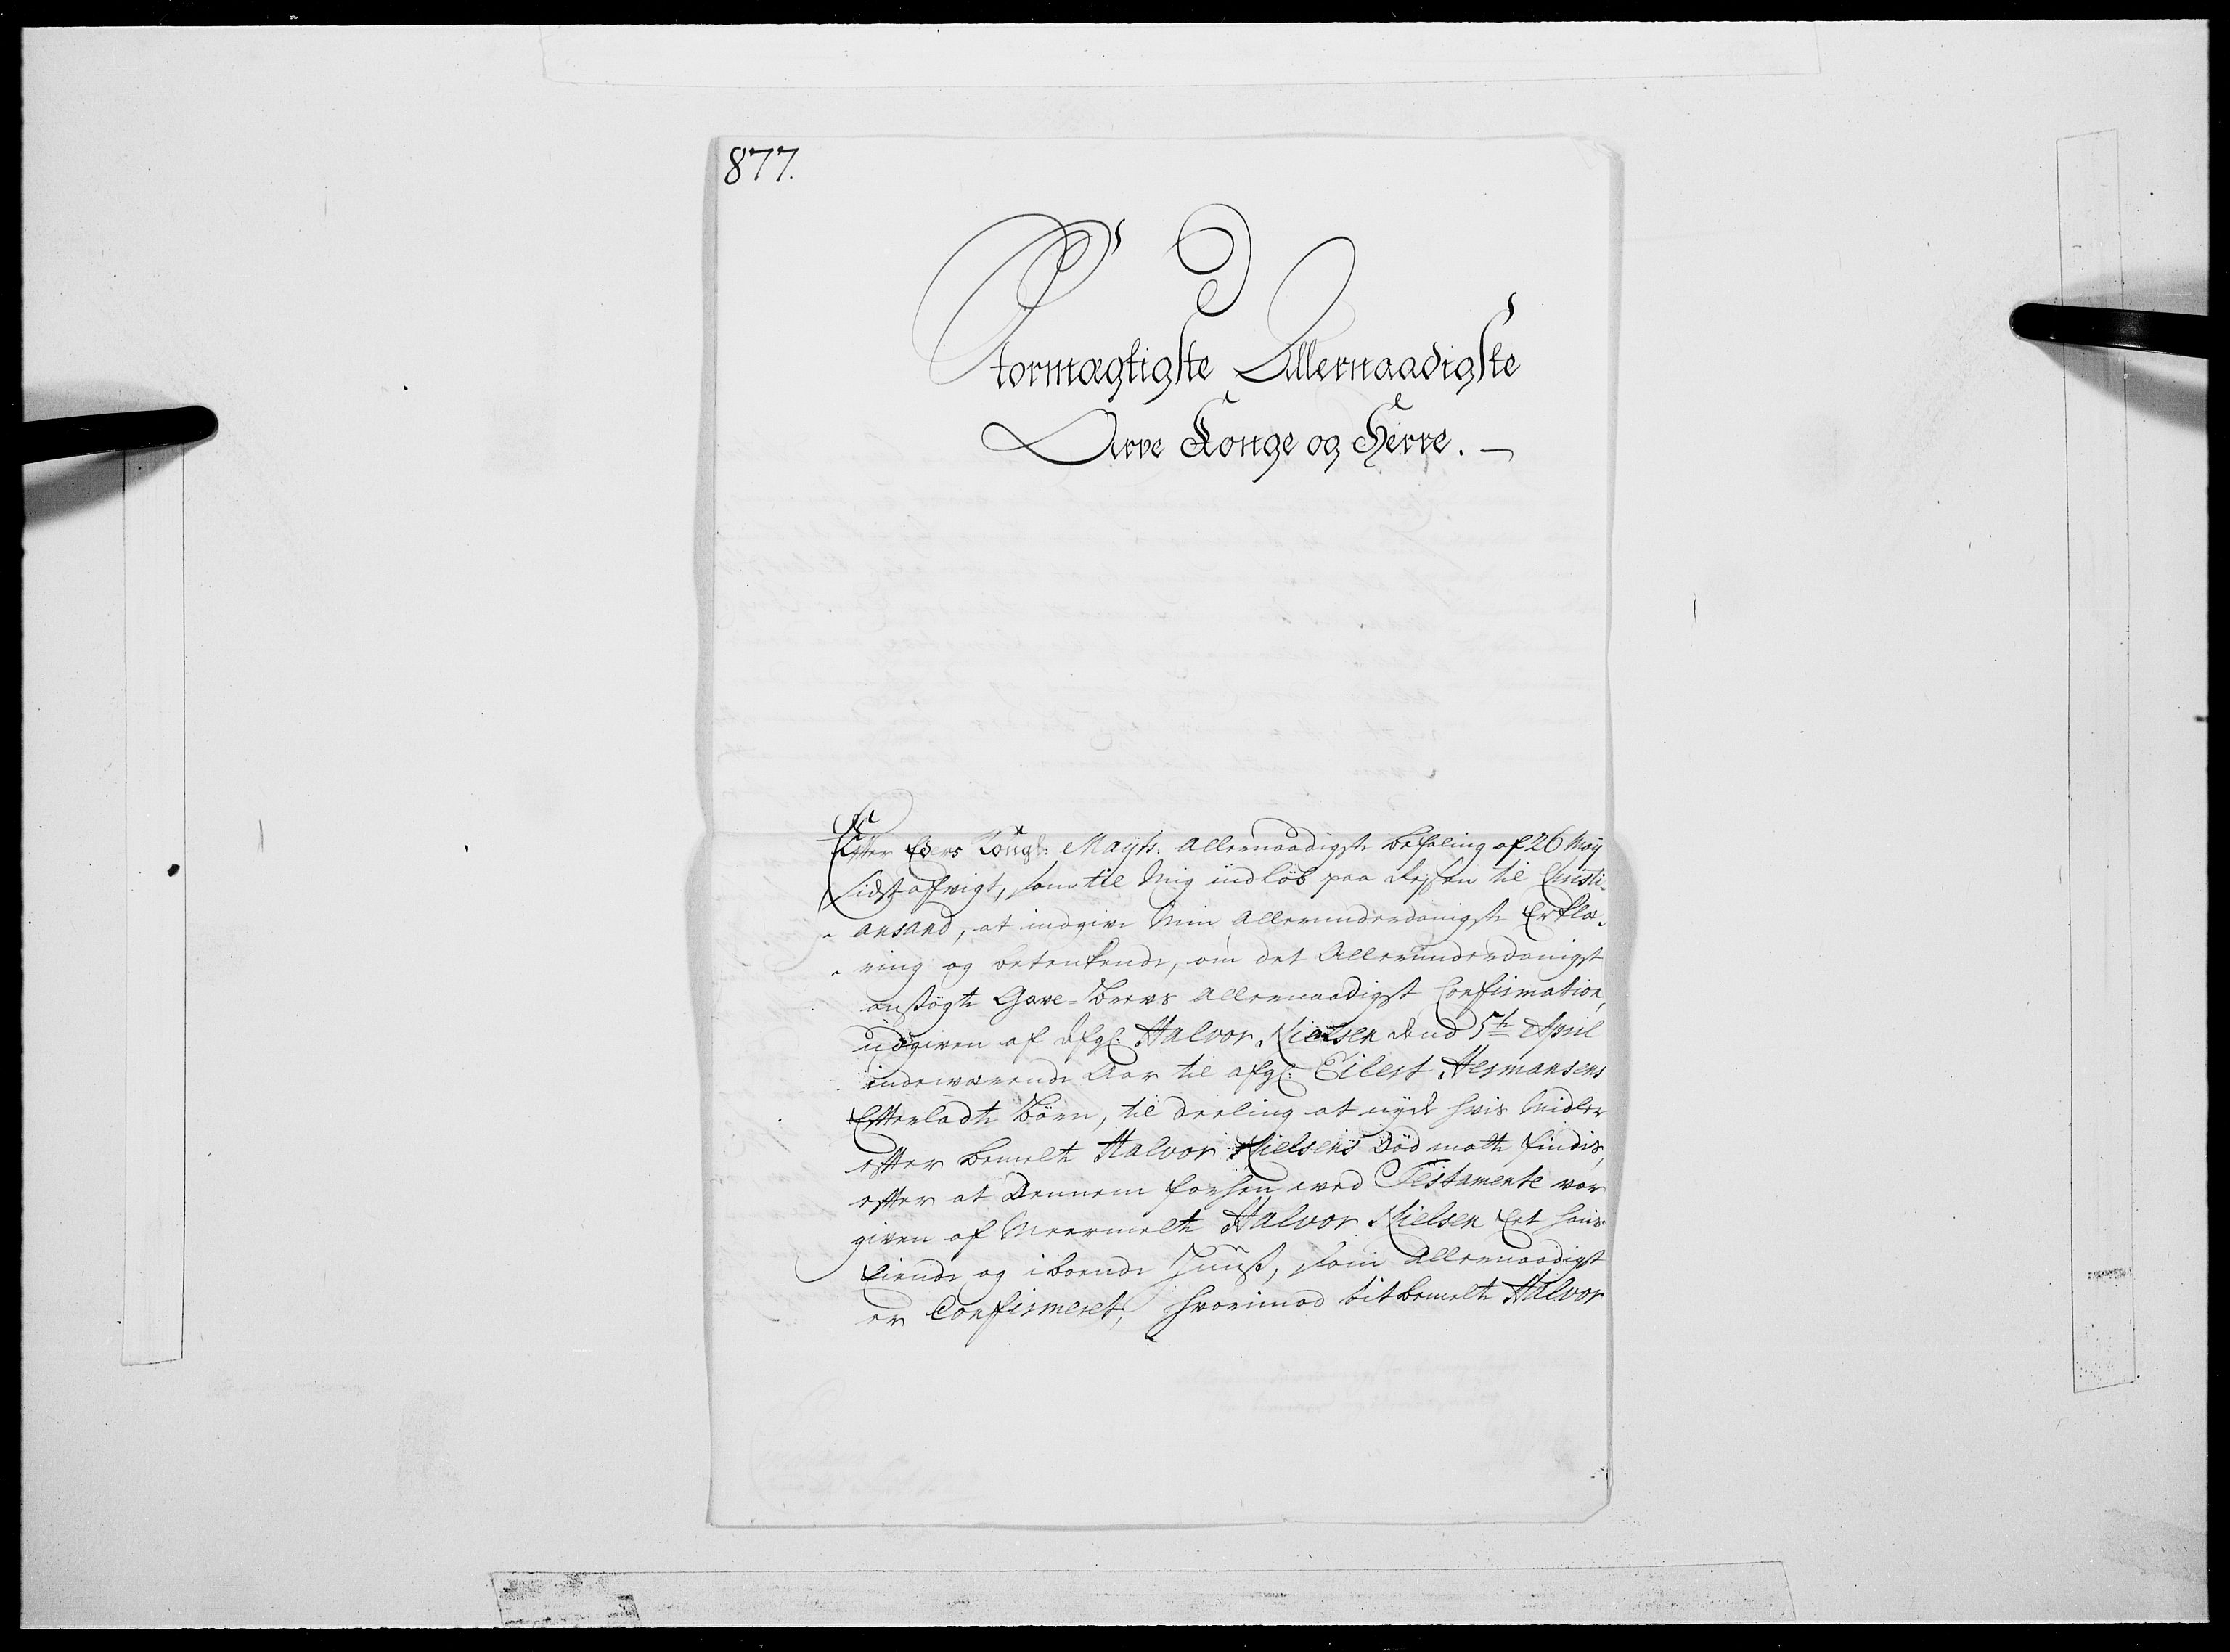 877.
Stormægtigste Allernaadigste
Arve Konge og Herre. —
Efter Eders Kongl: Mayts. Allernaadigste befaling af 26 Maij
sidst afvigt, som til Mig indløb paa Rejsen til Christi-
ansand, at indgive Min Allerunderdanigste Erklæ-
ring og betenkende, om det Allerunderdanigst
ansøgte Gave-Brevs Allernaadigst Confirmation,
udgiven af Afgl: Halvor Nielsen dend 5te April
indeværende Aar til afgl: Eilert Hermansens
Efterladte Børn, til deeling at nyde hvis Midler
efter bemelte Halvor Nielsens Død maatte findis,
efter at Dennem forhen ved Testamente var
given af Meermelte Halvor Nielsen Et hans
Eiende og iboende Huus, som Allernaadigst
er Confirmeret, hvorimod titbemelte Halvor